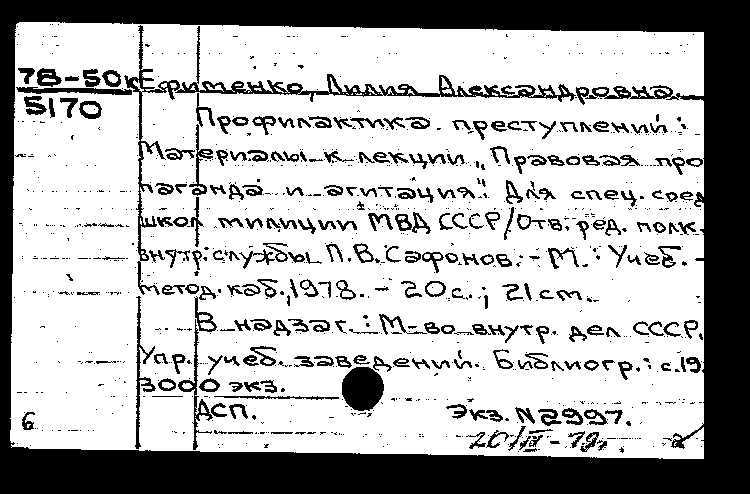 78-50к Ефименко, Лилия Александровна.
5170
Профилактика преступлений:
Материалы к лекции „Правовая про
паганда и агитация". Для спец. сред
школ милиции МВД СССР/Отв. ред. полк.
внутр. службы П.В. Сафонов. - М.: Учеб. -
метод. каб., 1978. - 20 с.; 21 см.
В надзаг.: М-во внутр. дел СССР.
Упр. учеб. заведений. Библиогр.: с. 19
3000 экз.
6 ДСП. Экз. N 2997.